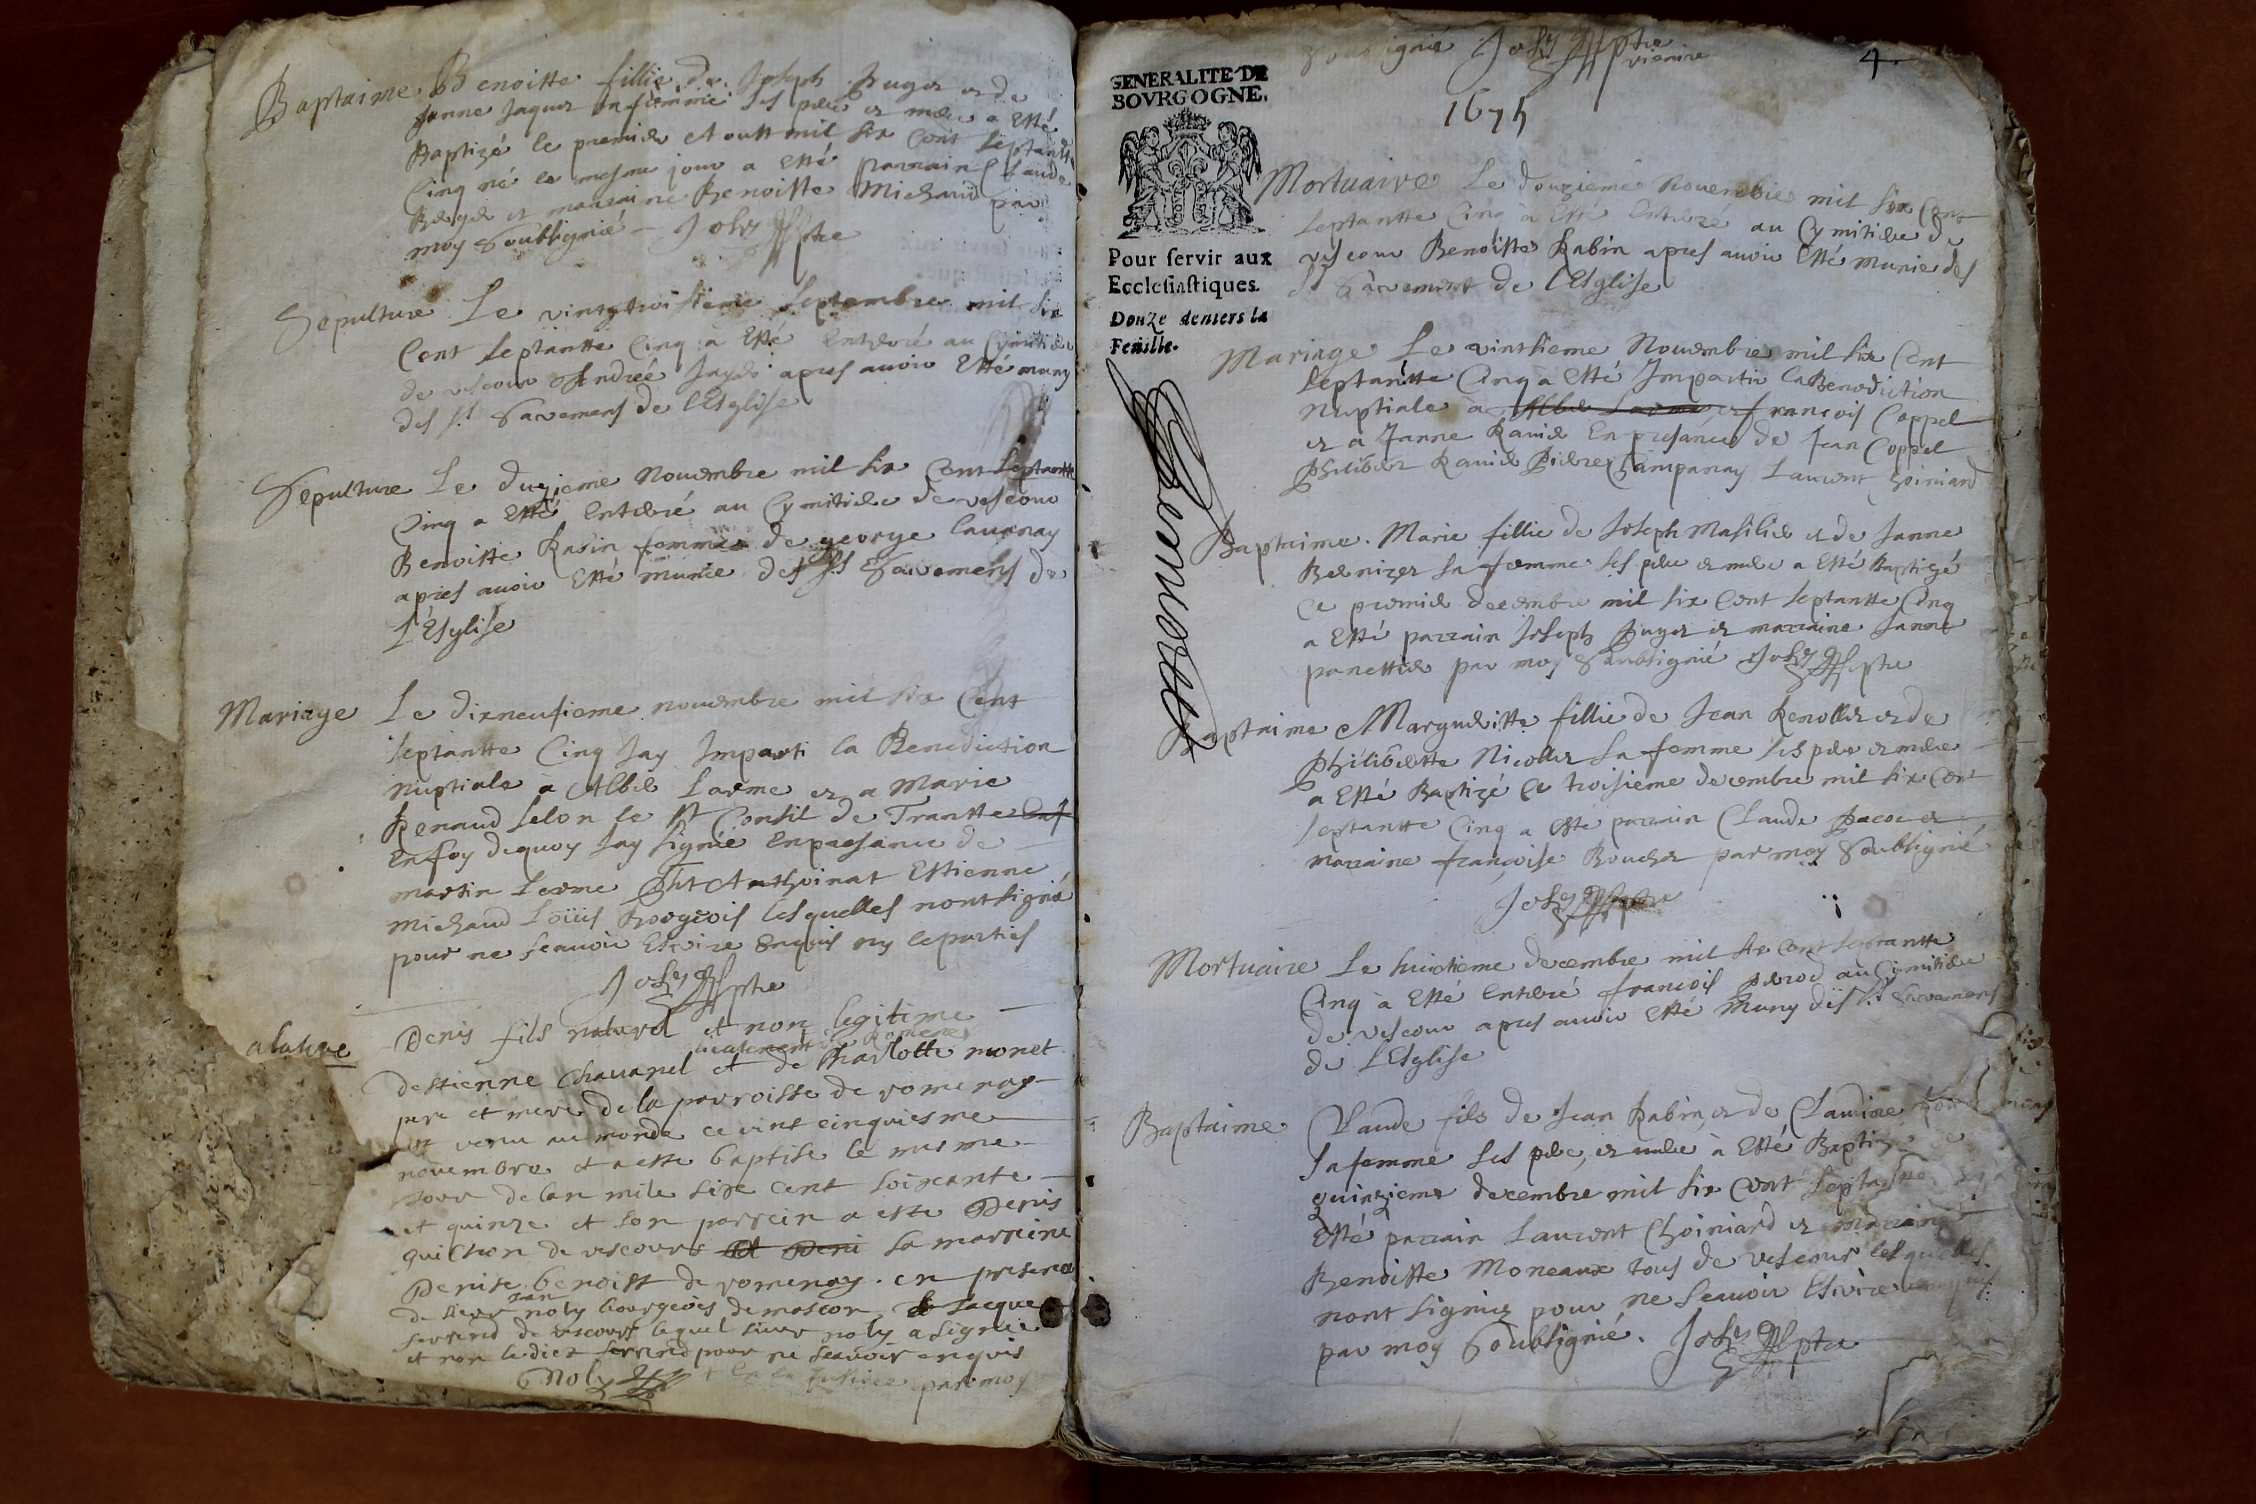 Baptaime Benoitte fillie de Joseph Puget et de
Janne Jaquet sa femme ses pere et mere a Esté
Baptizé le premier Aoust mil six Cent septantte
Cinq né le mesme jour a esté parrain Claude
Berger et marraine Benoitte Michaud par
moy soubsignié Joly ptre
Sepulture Le vingttroisieme septembre mil six
Cent septantte Cinq à Esté Enterré au Cymitiere
de vescour Andréé apres avoir Esté muny
des sts sacremens de l'Esglise
Sepulture Le duzieme Novembre mil six Cent septantte
Cinq a Esté Enterré au Cymitiere de vescour
Benoitte Rabin femme de george Cauanay
apres avoir Esté munie des sts sacremens de
L'Esglise
Mariage Le dixneufieme novembre mil six Cent
septantte Cinq Jay Imparti la Benediction
Nuptiale à Alber Larme et a Marie
Renaud selon le st Consil de Trantte
Enfoy dequoy Jay signié Enpresance de
martin Lerme pht Anthoinat Estienne
michaud Loüis Borgeois lesquelles nont signié
pour ne scavoir Escrire Enquis ny leparties
Joly ptre
Denis fils naturel et non legitime
destienne Chavanel et de Charlotte monet
pere et mere de la parroisse de romenay
est venu au monde ce vint cinquiesme
novembre et a este baptise le mesme
jour de lan mile sixe cent soixcante
et quinze et son parrein a este Denis
guichon de vescours et Deni la marreine
Denise benoist de romenay en presence
de sieur Jean noly bourgeois de mascon et Jacque
ferrend de vescours lequel sieur noly a signie
et non ledict ferrend pour ne scavoir enquis
Noly par moy
soubsignié Joly ptre
vicaire
4
GENERALITE DE
BOVRGOGNE.
1675
Pour servir aux
Ecclesiastiques.
Douze deniers la
Feüille.
Mortuaire Le douzieme Novembre mil six Cent
septantte Cinq à Esté Enterré au Cymitiere de
vescour Benoitte Rabin apres avoir Esté munie des
st sacrement de l'Esglise
Mariage Le vintsieme Novembre mil six Cent
septantte Cinq a Esté Imparti la Benediction
Nuptiale à Alber Larme et françois Coppel
et a Janne Ravier En presance de Jean Coppel
philiber Ravier Pierre Champanay Laurent Choiniard
Baptaime. Marie fillie de Joseph Masilier et de Janne
Bernizet sa femme ses pere et mere a Esté Baptizé
Ce premier decembre mil six Cent septantte Cinq
a Esté parrain Joseph Puget et marraine Janne
panettier par moy soubsignié Joly ptre
Baptaime Margueritte fillie de Jean Renollet et de
philiberte Nicollet sa femme ses pere et mere
a Esté Baptizé Ce troisieme decembre mil six Cent
septantte Cinq a este parrain Claude Pacoe et
marraine françoise Bouchet par moy soubsignié
Joly ptre
Mortuaire Le huictieme decembre mil six Cent septantte
Cinq à Esté Enterré françois perrod au Cymitiere
de vescour apres avoir Esté Muny des st sacremens
de L'Esglise
Baptaime Claude fils de Jean Rabin, et de Claudine
sa femme ses pere, et mere à Esté Baptizé
quinzieme decembre mil six Cent septantte
Esté parrain Laurent Choiniard et marraine
Benoitte Moneaux tous de vescour lesquelles
nont signiez pour ne scavoir Escrire enquis
par moy soubsignié. Joly ptre